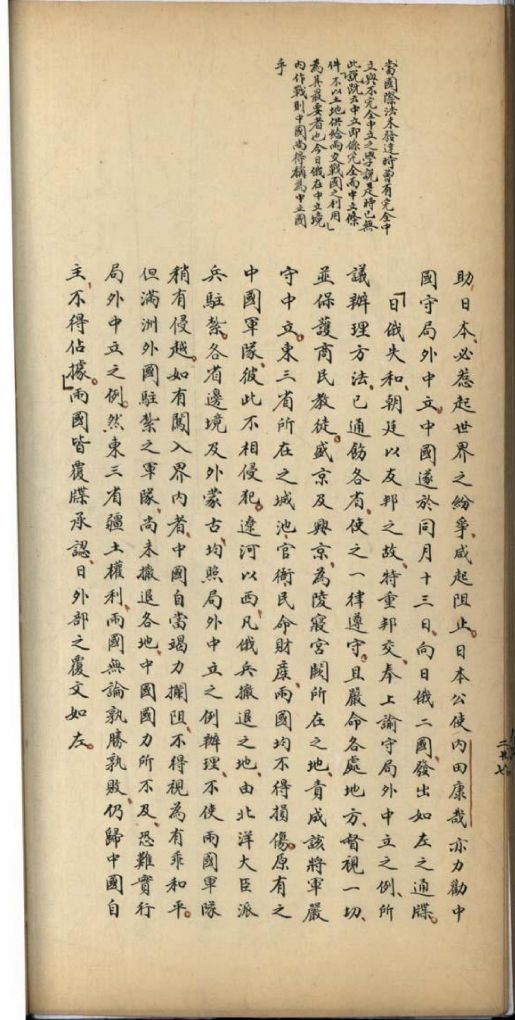 當國際法未發達時曾有完全中
立與不完全中立之學說是時已無
此說既云中立即係完全而中立條
件不以土地供給兩交戰國之利用
為其最要者也今日俄在中立境
內作戰則中國尚得稱為中立國
乎
助日本、必惹起世界之紛爭、咸起阻止。日本公使內田康哉亦力勸中
國守局外中立。中國遂於同月十三日、向日俄二國、發出如左之通牒。
「日俄失和、朝廷以友邦之故、特重邦交、奉上諭守局外中立之例、所
議辦理方法、已通飭各省、使之一律遵守。且嚴命各處地方、督視一切、
並保護商民教徒。盛京及興京、為陵寢宮闕所在之地、責成該將軍嚴
守中立。東三省所在之城池、官衙、民命財產、兩國均不得損傷。原有之
中國軍隊、彼此不相侵犯。遼河以西、凡俄兵撤退之地、由北洋大臣派
兵駐紮。各省邊境及外蒙古、均照局外中立之例辦理、不使兩國軍隊
稍有侵越。如有闖入界內者、中國自當竭力攔阻、不得視為有乖和平。
但滿洲外國駐紮之軍隊、尚未撤退各地、中國國力所不及、恐難實行
局外中立之例。然東三省疆土權利、兩國無論孰勝孰敗、仍歸中國自
主、不得佔據。」兩國皆覆牒承認、日外部之覆文如左。